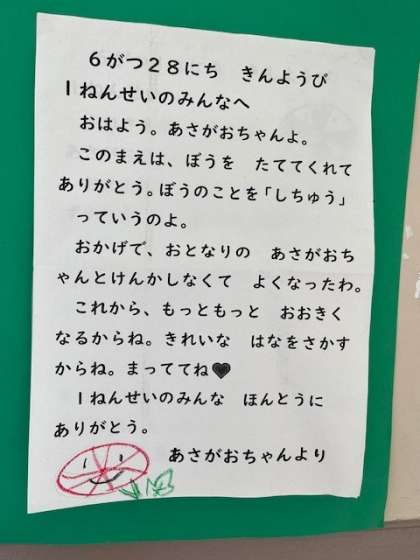 ６がつ２８にち　きんようび
１ねんせいのみんなへ
　おはよう。あさがおちゃんよ。
　このまえは、ぼうを　たててくれて
ありがとう。ぼうのことを「しちゅう」
っていうのよ。
　おかげで、おとなりの　あさがおち
ゃんとけんかしなくて　よくなったわ。
　これから、もっともっと　おおきく
なるからね。きれいな　はなをさかす
からね。まっててね♥
　１ねんせいのみんな　ほんとうに
ありがとう。
あさがおちゃんより